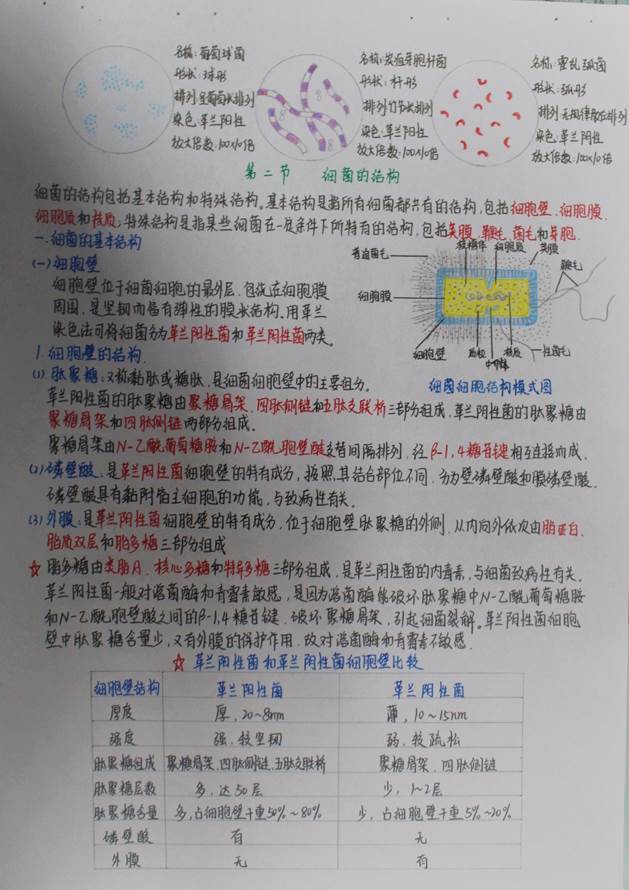 名称：葡萄球菌
形状：球形
排列：呈葡萄状排列
染色：革兰阳性
放大倍数：100×10倍
名称：炭疽芽胞杆菌
形状：杆形
排列：竹节状排列
染色：革兰阳性
放大倍数：100×10倍
名称：霍乱弧菌
形状：弧形
排列：无规律散在排列
染色：革兰阴性
放大倍数：100×10倍
第二节 细菌的结构
细菌的结构包括基本结构和特殊结构。基本结构是指所有细菌都共有的结构，包括细胞壁、细胞膜、
细胞质和核质；特殊结构是指某些细菌在一定条件下所特有的结构，包括荚膜、鞭毛、菌毛和芽胞。
一、细菌的基本结构
(一)细胞壁
细胞壁位于细菌细胞的最外层，包绕在细胞膜
周围，是坚韧而富有弹性的膜状结构，用革兰
染色法可将细菌分为革兰阳性菌和革兰阴性菌两类。
普通菌毛
核糖体
细胞质
荚膜
鞭毛
细胞膜
细胞壁
质粒
中介体
核质
性菌毛
细菌细胞结构模式图
1.细胞壁的结构
(1)肽聚糖：又称黏肽或糖肽，是细菌细胞壁中的主要组分。
革兰阳性菌的肽聚糖由聚糖骨架、四肽侧链和五肽交联桥三部分组成，革兰阴性菌的肽聚糖由
聚糖骨架和四肽侧链两部分组成。
聚糖骨架由N-乙酰葡萄糖胺和N-乙酰胞壁酸交替间隔排列，经β-1,4糖苷键相互连接而成。
(2)磷壁酸：是革兰阳性菌细胞壁的特有成分，按照其结合部位不同，分为壁磷壁酸和膜磷壁酸。
磷壁酸具有黏附宿主细胞的功能，与致病性有关。
(3)外膜：是革兰阴性菌细胞壁的特有成分，位于细胞壁肽聚糖的外侧，从内向外依次由脂蛋白、
脂质双层和脂多糖三部分组成
☆ 脂多糖由类脂A、核心多糖和特异多糖三部分组成，是革兰阴性菌的内毒素，与细菌致病性有关。
革兰阳性菌一般对溶菌酶和青霉素敏感，是因为溶菌酶能破坏肽聚糖中N-乙酰葡萄糖胺
和N-乙酰胞壁酸之间的β-1,4糖苷键，破坏聚糖骨架，引起细菌裂解。革兰阴性菌细胞
壁中肽聚糖含量少，又有外膜的保护作用，故对溶菌酶和青霉素不敏感。
☆ 革兰阳性菌和革兰阴性菌细胞壁比较
细胞壁结构 革兰阳性菌 革兰阴性菌
厚度 厚，20~80nm 薄，10~15nm
强度 强，较坚韧 弱，较疏松
肽聚糖组成 聚糖骨架、四肽侧链、五肽交联桥 聚糖骨架、四肽侧链
肽聚糖层数 多，达50层 少，1~2层
肽聚糖含量 多，占细胞壁干重50%~80% 少，占细胞壁干重5%~20%
磷壁酸 有 无
外膜 无 有